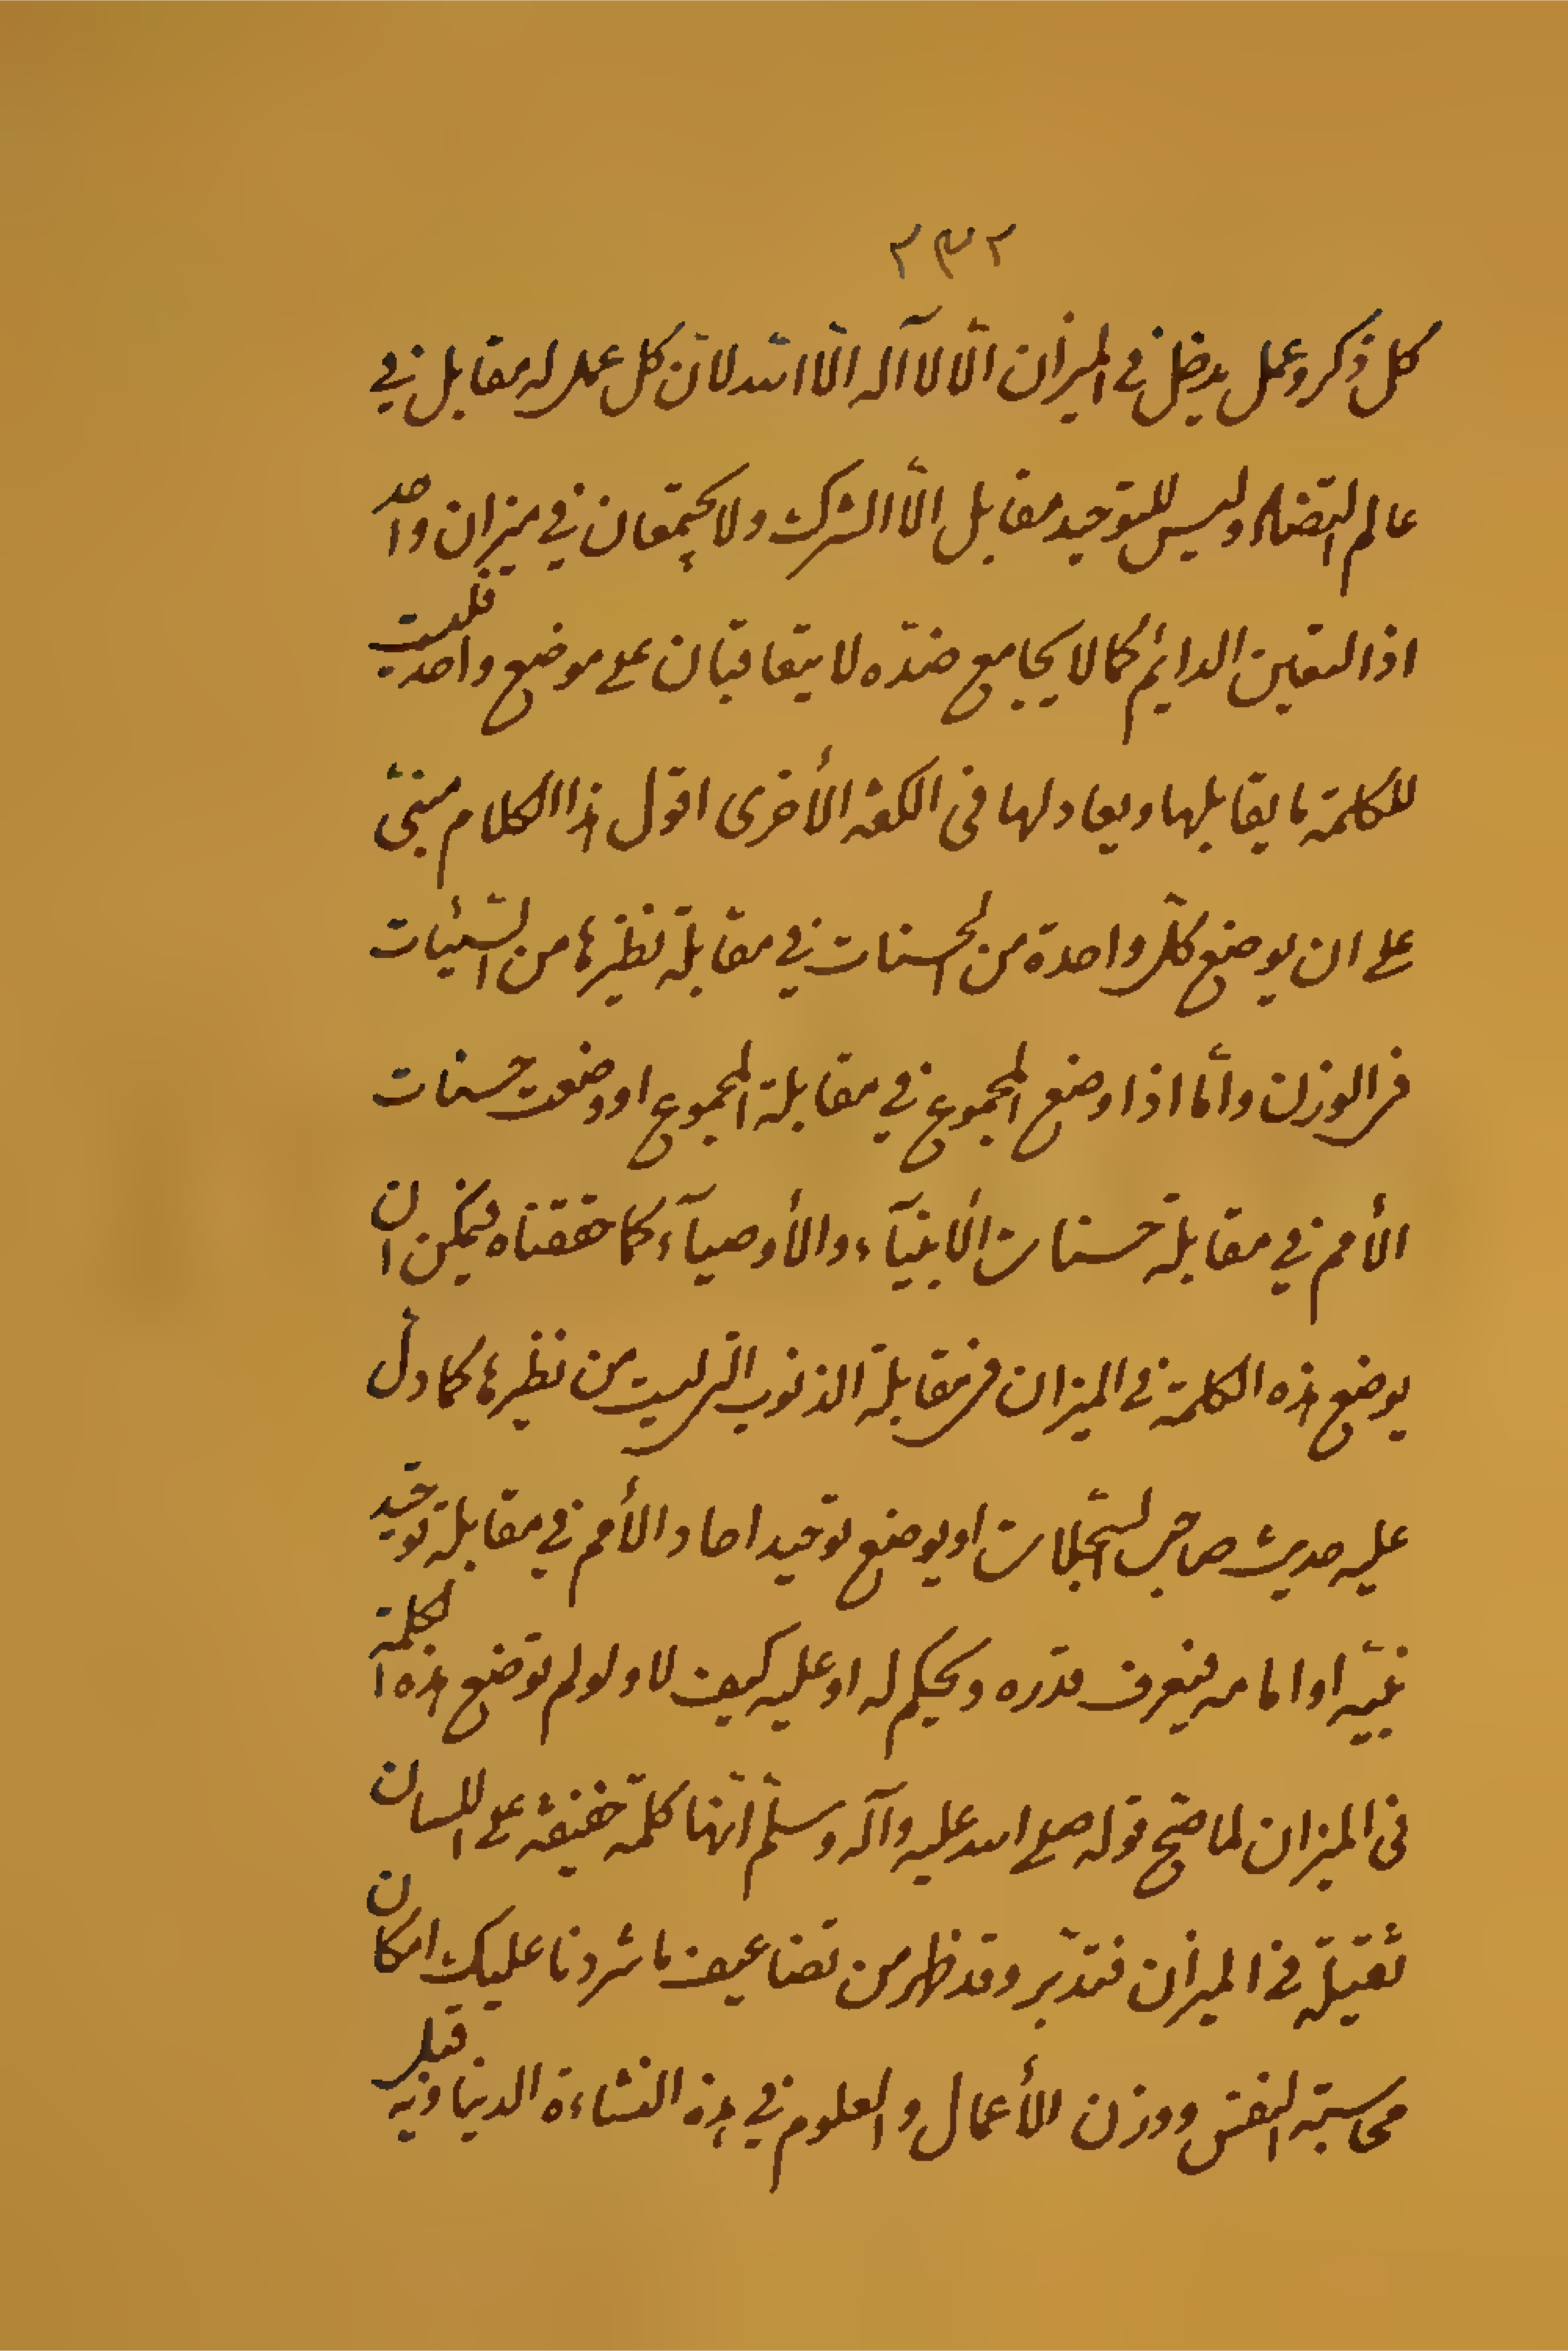 ٢٣٢
كل ذكر وعمل يدخل في الميزان الّا لا آله الّا الله لانّ كل عمل له مقابل في
عالم التضاد وليس للتوحيد مقابل الّا الشرك ولا يجتمعان في ميزان واحد
اذ اليقين الدائم كما لا يجامع ضدّه لا يتعاقبان على موضع واحد فليست
للكلمة ما يقابلها ويعادلها في الكفة الأخرى اقول هذا الكلام مبنىّ
على ان يوضع كلّ واحدة من الحسنات في مقابلة نظيرها من السّيئات
في الوزن وامّا اذا وضع المجموع في مقابلة المجموع او وضعت حسنات
الأمم في مقابلة حسنات الأنبيآء والأوصيآء كما حققناه فيمكن ان
يوضع هذه الكلمة في الميزان في مقابلة الذنوب التي ليست من نظيرها كما دلّ
عليه حديث صاحب السّجلات او يوضع توحيد احاد الأمم في مقابلة توحيد
نبيّه او امامه فيعرف قدره ويحكم له او عليه كيف لا ولو لم توضع هذه الكلمة
في الميزان لما صحّ قوله صلى الله عليه وآله وسلّم انّها كلمة خفيفة على اللسان
ثقيلة في الميزان فتدبّر وقد ظهر من تضاعيف ما سردنا عليك امكان
محاسبة النفس ووزن الأعمال والعلوم في هذه النشاءة الدنياويه قبل